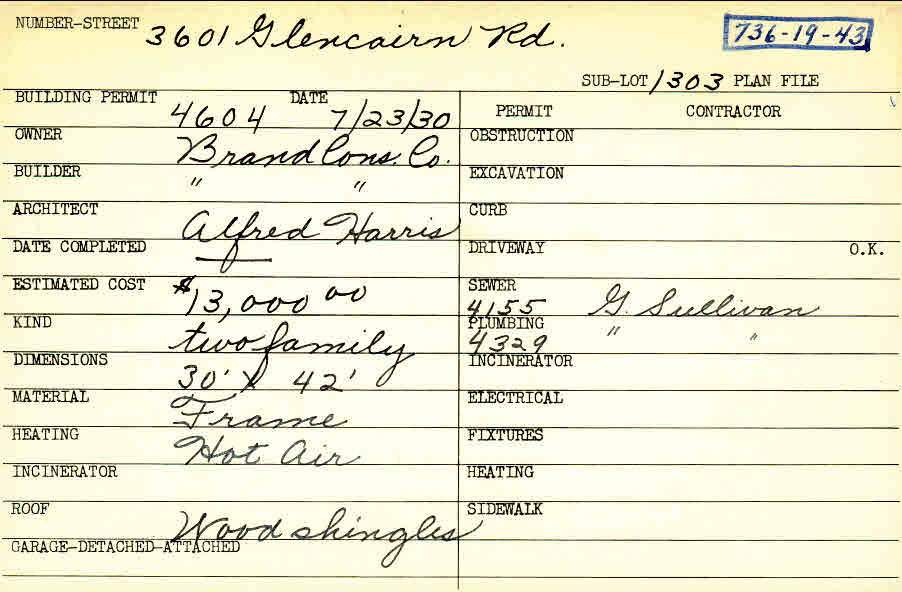 NUMBER-STREET 3601 Glencairn Rd. 736-19-43
SUB-LOT 1303 PLAN FILE
BUILDING PERMIT 4604 DATE 7/23/30
OWNER Brand Cons. Co.
BUILDER " "
ARCHITECT Alfred Harris
DATE COMPLETED
ESTIMATED COST $13,000 00
KIND two family
DIMENSIONS 30' X 42'
MATERIAL Frame
HEATING Hot Air
INCINERATOR
ROOF Wood shingles
GARAGE-DETACHED-ATTACHED
PERMIT CONTRACTOR
OBSTRUCTION
EXCAVATION
CURB
DRIVEWAY O.K.
SEWER
4155 G. Sullivan
PLUMBING
4329 " "
INCINERATOR
ELECTRICAL
FIXTURES
HEATING
SIDEWALK